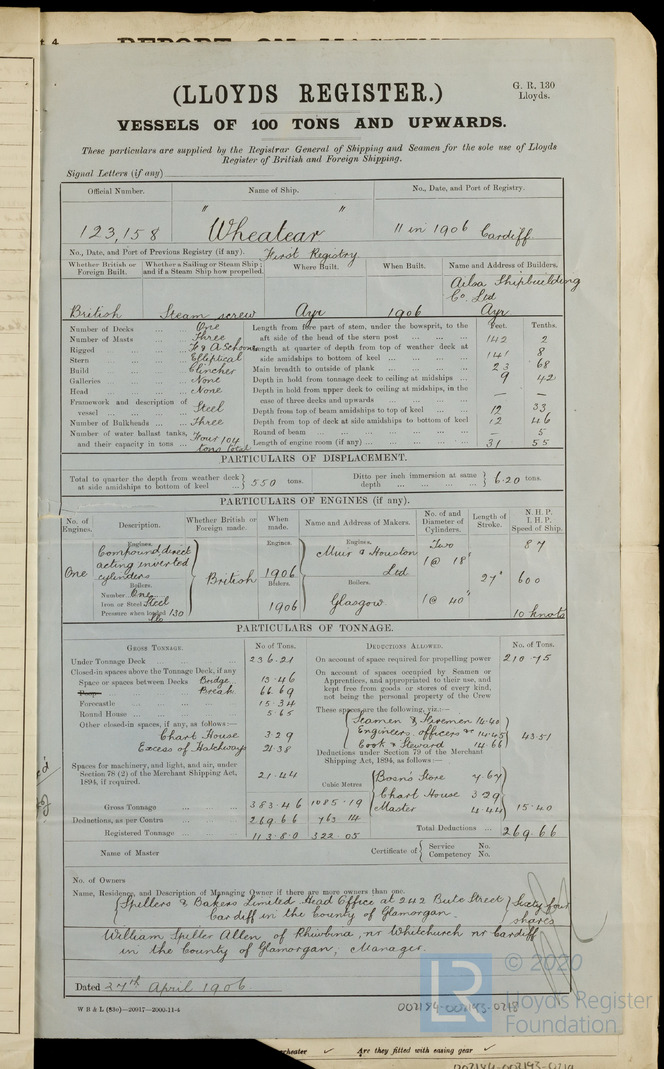 (LLOYDS REGISTER.)
G. R. 130
Lloyds.
VESSELS OF 100 TONS AND UPWARDS.
These particulars are supplied by the Registrar General of Shipping and Seamen for the sole use of Lloyds
Register of British and Foreign Shipping.
Signal Letters (if any)
Official Number. Name of Ship. No., Date, and Port of Registry.
123,158 "Wheatear" 11 in 1906 Cardiff
No., Date, and Port of Previous Registry (if any). First Registry
Whether British or Foreign Built. Whether a Sailing or Steam Ship; and if a Steam Ship how propelled. Where Built. When Built. Name and Address of Builders.
British Steam screw Ayr 1906 Ailsa Shipbuilding Co. Ltd Ayr
Number of Decks One
Number of Masts Three
Rigged F & A Schooner
Stern Elliptical
Build Clincher
Galleries None
Head None
Framework and description of vessel Steel
Number of Bulkheads Three
Number of water ballast tanks, and their capacity in tons Four 104 tons total
Feet. Tenths.
Length from fore part of stem, under the bowsprit, to the aft side of the head of the stern post 142 2
Length at quarter of depth from top of weather deck at side amidships to bottom of keel 141 8
Main breadth to outside of plank 23 68
Depth in hold from tonnage deck to ceiling at midships 9 42
Depth in hold from upper deck to ceiling at midships, in the case of three decks and upwards — —
Depth from top of beam amidships to top of keel 12 33
Depth from top of deck at side amidships to bottom of keel 12 46
Round of beam 5
Length of engine room (if any) 31 55
PARTICULARS OF DISPLACEMENT.
Total to quarter the depth from weather deck at side amidships to bottom of keel 550 tons. Ditto per inch immersion at same depth 6.20 tons.
PARTICULARS OF ENGINES (if any).
No. of Engines. Description. Whether British or Foreign made. When made. Name and Address of Makers. No. of and Diameter of Cylinders. Length of Stroke. N. H. P. I. H. P. Speed of Ship.
Engines. Engines. Engines.
One Compound, direct acting inverted cylinders British 1906 Muir & Houston Ltd Two 1@ 18" 27" 87 600
Boilers. Boilers. Boilers.
Number One
Iron or Steel Steel
Pressure when loaded 130 lbs
1906 Glasgow 1@ 40" 10 knots
PARTICULARS OF TONNAGE.
GROSS TONNAGE. No. of Tons.
Under Tonnage Deck 236.21
Closed-in spaces above the Tonnage Deck, if any
Space or spaces between Decks Bridge 13.46
Poop Break 66.69
Forecastle 15.34
Round House 5.65
Other closed-in spaces, if any, as follows:—
Chart House 3.29
Excess of Hatchways 21.38
Spaces for machinery, and light, and air, under Section 78 (2) of the Merchant Shipping Act, 1894, if required. 21.44
Cubic Metres
Gross Tonnage 383.46 1085.19
Deductions, as per Contra 269.66 763.14
Registered Tonnage 113.80 322.05
DEDUCTIONS ALLOWED. No. of Tons.
On account of space required for propelling power 210.75
On account of spaces occupied by Seamen or Apprentices, and appropriated to their use, and kept free from goods or stores of every kind, not being the personal property of the Crew
These spaces are the following, viz.:—
Seamen & Firemen 14.40
Engineers, officers &c 14.45
Cook & Steward 14.66
43.51
Deductions under Section 79 of the Merchant Shipping Act, 1894, as follows:—
Bosn's Store 7.67
Chart House 3.29
Master 4.44
15.40
Total Deductions 269.66
Name of Master Certificate of Service No. Competency No.
No. of Owners
Name, Residence, and Description of Managing Owner if there are more owners than one.
Spillers & Bakers Limited Head Office at 242 Bute Street Cardiff in the County of Glamorgan. Sixty four shares
William Spiller Allen of Rhiwbina, nr Whitchurch nr Cardiff
in the County of Glamorgan, Manager.
Dated 27th April 1906
W B & L (83o)—20917—2000-11-4
002184-002193-0218
© 2020
Lloyds Register
Foundation
LR
Are they fitted with easing gear